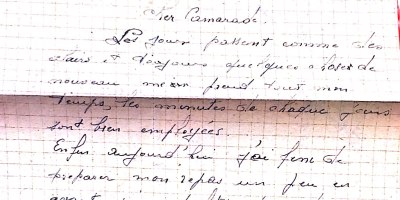 Cher Camarade.
Les jours passent comme des
et toujours quelques choses de
nouveau me prend tout mon
temps, les minutes de chaque jours
sont bien employées.
Enfin aujourd'hui j'ai fini de
preparer mon repas un peu en